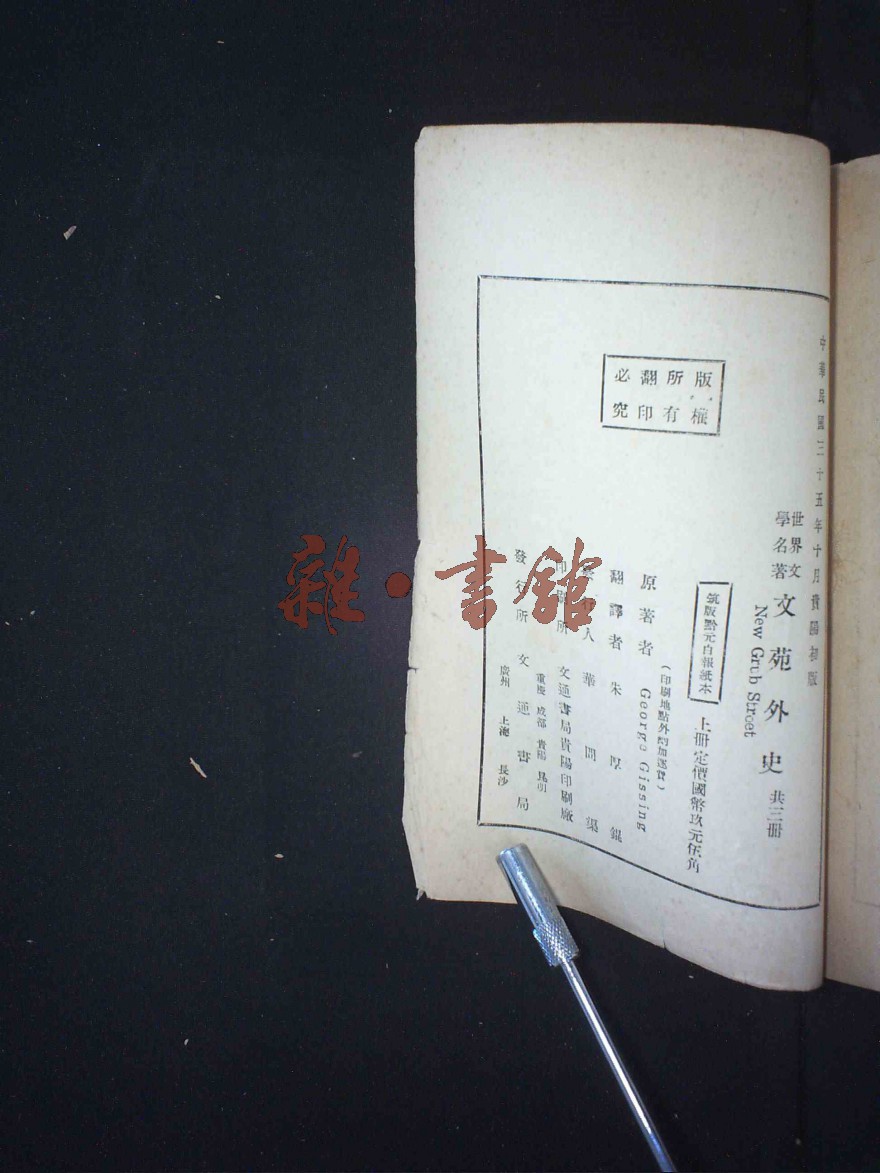 中華民國三十五年十月貴陽初版
世界文學名著
文苑外史
共三冊
New Grub Street
筑版黔元白報紙本
上冊定價國幣玖元伍角
(印刷地點外酌加運費)
原著者 George Gissing
翻譯者 朱厚錕
人 華問渠
印刷所 文通書局貴陽印刷廠
發行所 文通書局
重慶 成都 貴陽 昆明
廣州 上海 長沙
版權所有
翻印必究
雜·書館